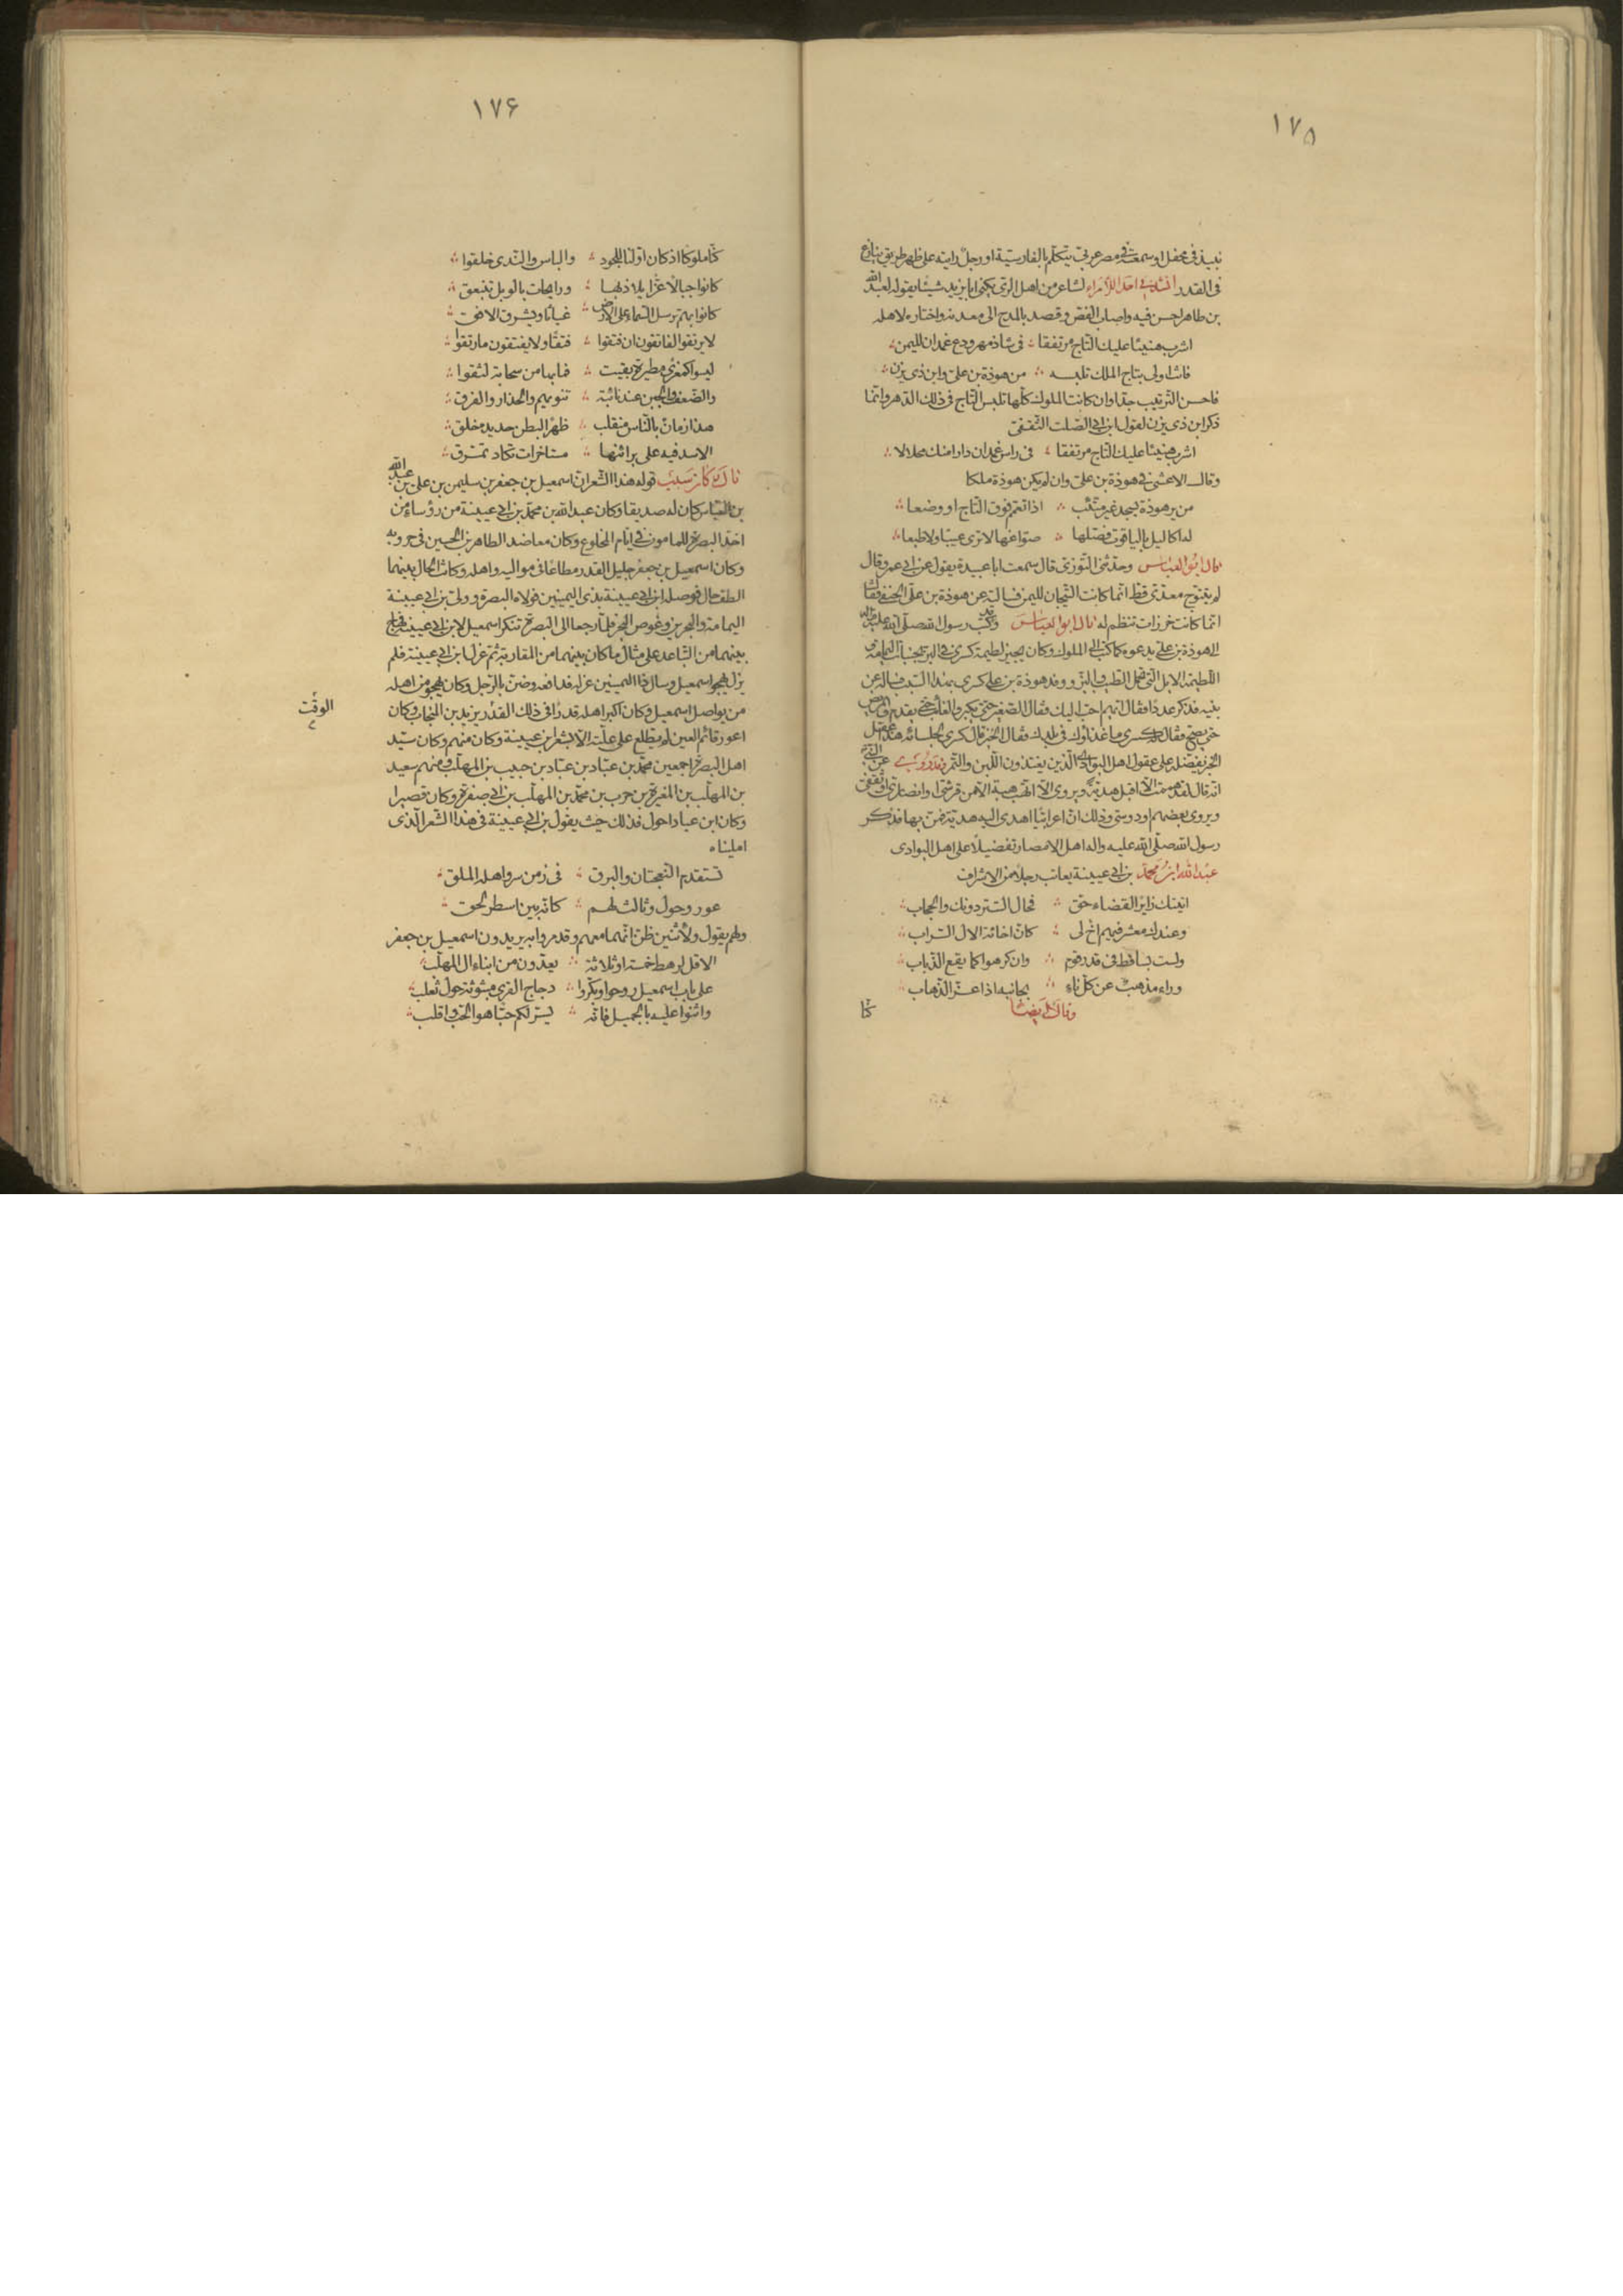 ١٧٥
نبيذ في محفل او سمعت في مصر عربي يتكلم بالفارسية او رجل رايته على ظهر طريق ينازع
في القدر انشدني احد الامراء لشاعر من اهل الرى يكنى ابا يزيد شيئا يقوله لعبد الله
بن طاهر احسن فيه واصاب الفص وقصد بالمدح الى معدنه واختاره لاهله
اشرب هنيئا عليك التاج مرتفقا في شاذمهر ودع غمدان لليمن
فانت اولى بتاج الملك تلبسه من هوذة بن على وابن ذى يزن
فاحسن الترتيب جدا وان كانت الملوك كلها تلبس التاج في ذلك الدهر وانما
ذكر ابن ذى يزن لقول ابن ابي الصلت الثقفى
اشرب هنيئا عليك التاج مرتفقا في راس غمدان دارا منك محلالا
وقال الاعشى في هوذة بن على وان لم يكن هوذة ملكا
من ير هوذة يسجد غير متئب اذا تعمم فوق التاج او وضعا
له اكاليل بالياقوت فصلها صواغها لا ترى عيبا ولا طبعا
قال ابو العباس وحدثنى التوزى قال سمعت ابا عبيدة يقول عن ابي عمرو قال
لم يتتوج معدى قط انما كانت التيجان لليمن فسالته عن هوذة بن على الحنفى فقال
انما كانت خرزات تنظم له قال ابو العباس وقد كتب رسول الله صلى الله عليه واله
الى هوذة بن على يدعوه كما كتب الى الملوك وكان يجيز لطيمة كسرى في البر بجنبات اليمامة
اللطيمة الابل التى تحمل الطيب والبز ووفد هوذة بن على كسرى بهذا السبب فساله عن
بنيه فذكر عددا فقال ايهم احب اليك فقال الصغير حتى يكبر والغائب حتى يقدم والمريض
حتى يصح فقال كسرى ما غذاؤك في بلدك فقال الخبز قال كسرى لجلسائه هذا عقل
الخبز يفضله على عقول اهل البوادى الذين يغتذون اللبن والتمر وقد روى عن النبي
انه قال لقد هممت الا اقبل هدية ويروى الا اتهب هبة الا من قرشى او انصارى او ثقفى
ويروى بعضهم او دوسى وذلك ان اعرابيا اهدى اليه هدية فمن بها فذكر
رسول الله صلى الله عليه واله اهل الامصار تفضيلا على اهل البوادى
عبد الله بن محمد بن ابي عيينة يعاتب رجلا من الاشراف
اتيتك زايرا لقضاء حق فحال الستر دونك والحجاب
وعندك معشر فيهم اخ لى كان اخائه الال السراب
ولست بساقط في قدر قوم وان كرهوا كما يقع الذباب
وراء مذهب عن كل ناء بجانبه اذا عز الذهاب
وقال ايضا
كنا
١٧۶
كنا ملوكا اذ كان اولنا للجود والباس والندى خلقوا
كانوا جبالا عزا يلاذ بها ورايحات بالوبل تنبعق
كانوا بهم ترسل السماء على الارض غياثا ويشرق الافق
لا يرتقوا الفاتقون ان فتقوا فتقا ولا يفتقون ما رتقوا
ليسوا كمعزى مطيرة بقيت فما بها من سحابة لثقوا
والضعف والجبن عند نائبة تنوبهم والحذار والفرق
هذا زمان بالناس منقلب ظهرا لبطن جديده خلق
الاسد فيه على براثنها مستاخرات تكاد تمزق
قال وكان سبب قوله هذا الشعر ان اسمعيل بن جعفر بن سليمن بن على بن عبد الله
بن العباس كان له صديقا وكان عبد الله بن محمد بن ابي عيينة من رؤساء من
اخذ البصرة للمامون في ايام المخلوع وكان معاضد الطاهر بن الحسين في حروبه
وكان اسمعيل بن جعفر جليل القدر مطاعا في مواليه واهله وكانت الحال بينهما
الطف حال فوصله ابن ابي عيينة بذى اليمينين فولاه البصرة وولى بن ابي عيينة
اليمامة والبحرين وغوص البحر فلما رجعا الى البصرة تنكر اسمعيل لابن ابي عيينة فهاج
بينهما من التباعد على مثال ما كان بينهما من المقاربة ثم عزل ابن ابي عيينة فلم
يزل يهجو اسمعيل وسال ذا اليمينين عزله فدافعه وضن بالرجل وكان يهجو من اهله
من يواصل اسمعيل وكان اكبر اهله قدرا في ذلك القدر يزيد بن المنجاب وكان
الوقت
اعور قائم العين لم يطلع على علته الا بشعر ابن عيينة وكان منهم وكان سيد
اهل البصرة اجمعين محمد بن عباد بن عباد بن حبيب بن المهلب ومنهم سعيد
بن المهلب بن المغيرة بن حرب بن محمد بن المهلب بن ابي صفرة وكان قصيرا
وكان ابن عباد احول فذلك حيث يقول بن ابي عيينة في هذا الشعر الذى
امليناه
تستقدم النعجتان والبرق في زمن سرو اهله الملق
عور وحول وثالث لهم كانه بين اسطر لحق
ولهم يقول ولاثنين ظن انهما معهم وقد مروا به يريدون اسمعيل بن جعفر
الا قل لرهط خمسة او ثلاثة يعدون من ابناء ال المهلب
على باب اسمعيل روحوا وبكروا دجاج القرى مبثوثة حول ثعلب
واثنوا عليه بالجميل فانه يسر لكم حبا هو الحب واقلب